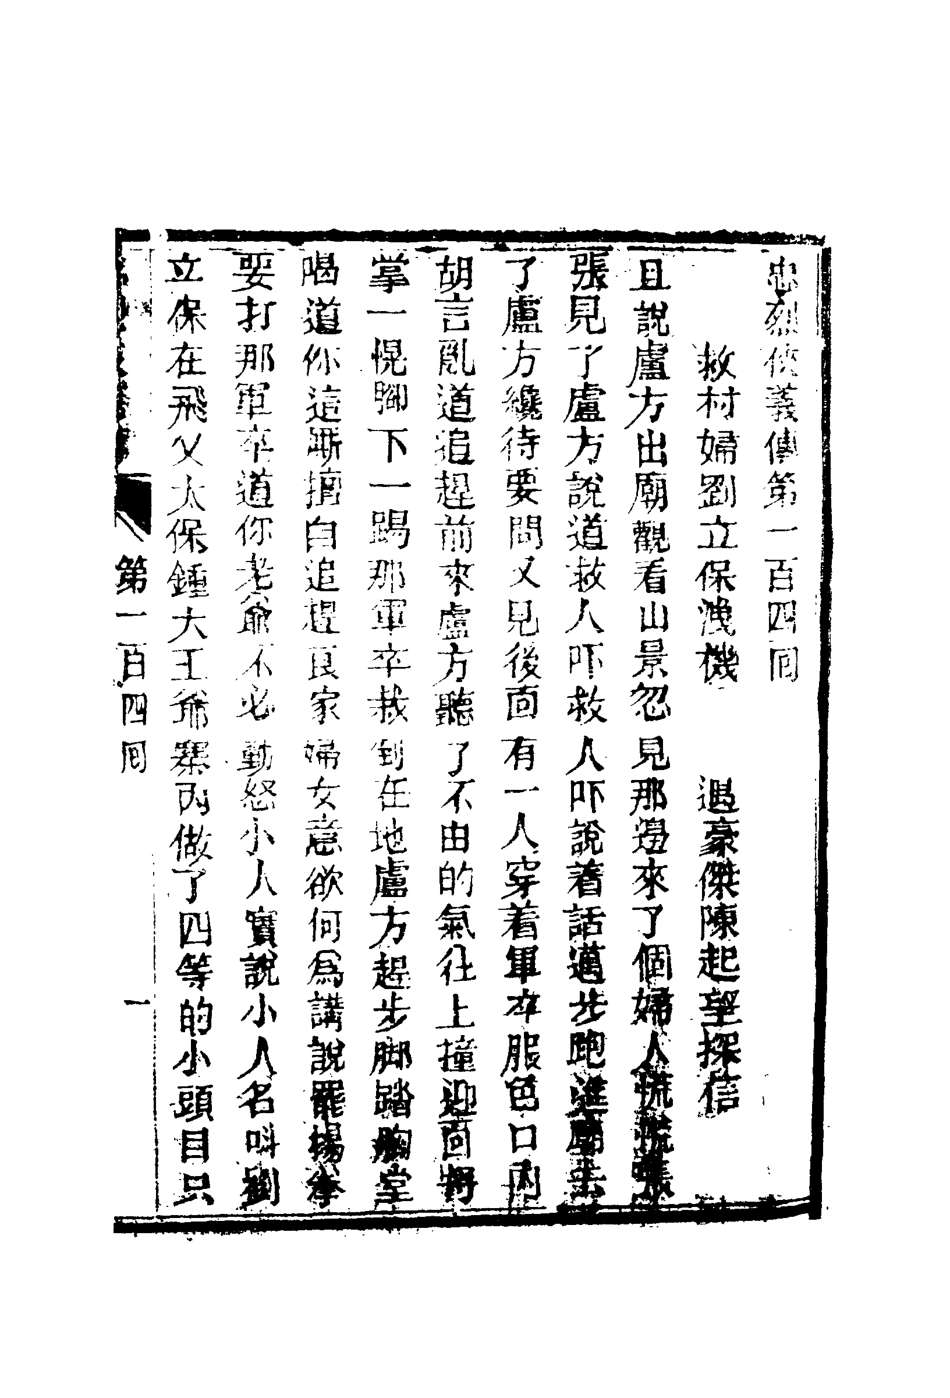 忠烈俠義傳第一百四囘
救村婦劉立保洩機　遇豪傑陳起望探信
且說盧方出廟觀看山景忽見那邊來了個婦人慌慌張
張見了盧方說道救人吓救人吓說着話邁步跑進廟去
了盧方纔待要問又見後面有一人穿着軍卒服色口內
胡言亂道追趕前來盧方聽了不由的氣往上撞迎面將
掌一愰腳下一踢那軍卒栽倒在地盧方趕步脚踏胸堂
喝道你這厮擅自追趕良家婦女意欲何爲講說罷揚拳
要打那軍卒道你老爺不必動怒小人實說小人名叫劉
立保在飛乂太保鍾大王爺寨內做了四等的小頭目只
第一百四囘
一